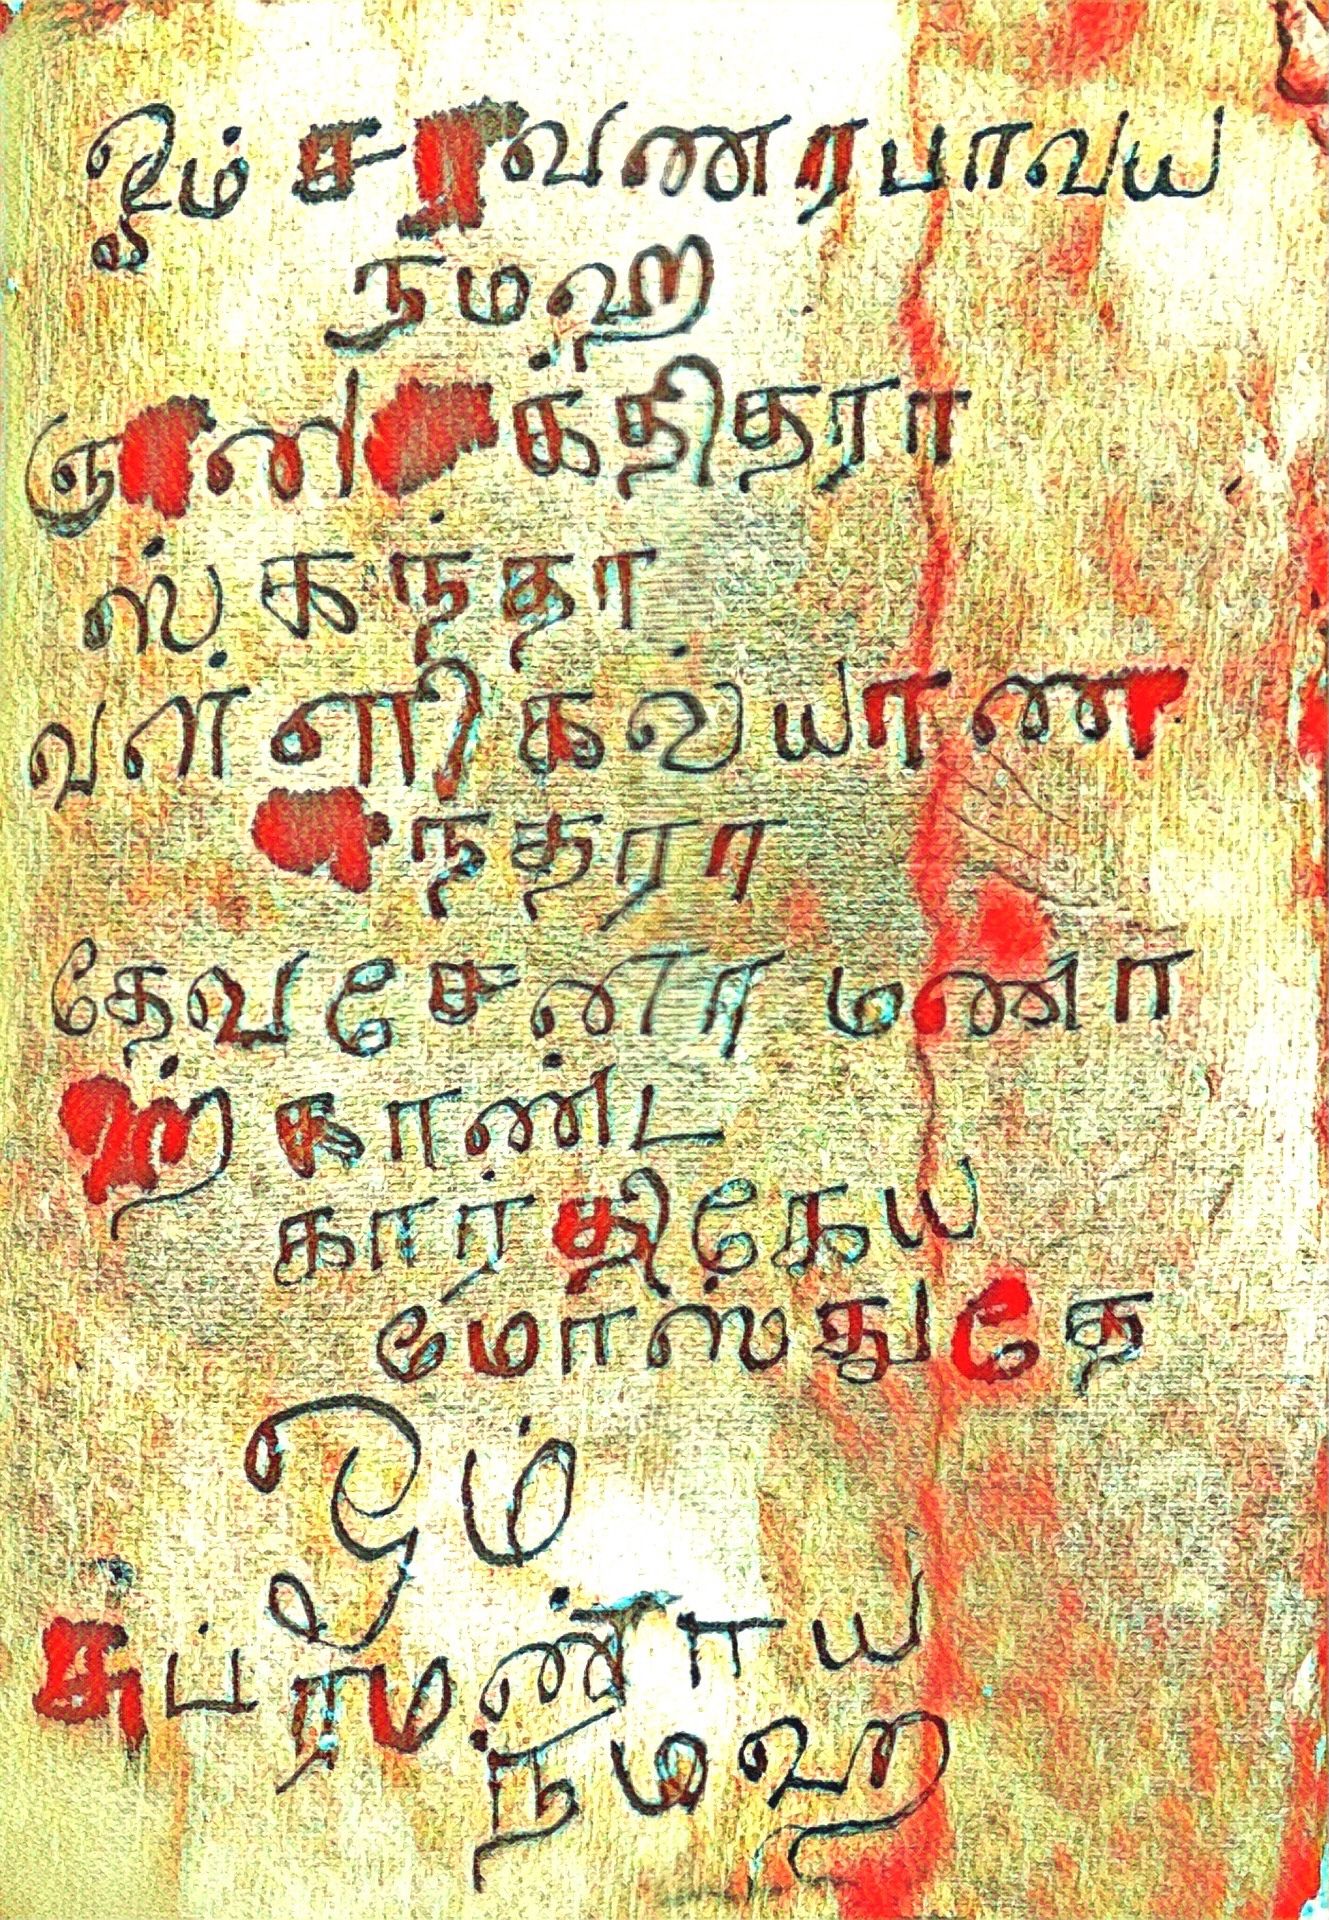 ஓம் சரவணரபாவய
நமஹ
க்திதரா
ஸ்கந்தா
வள்ளிகல்யாண
தேவசேனா மணா
காண்ட
கார்திகேய
மோஸ்துதே
ஓம்
சுப்ரமண்யாய
நமஹ